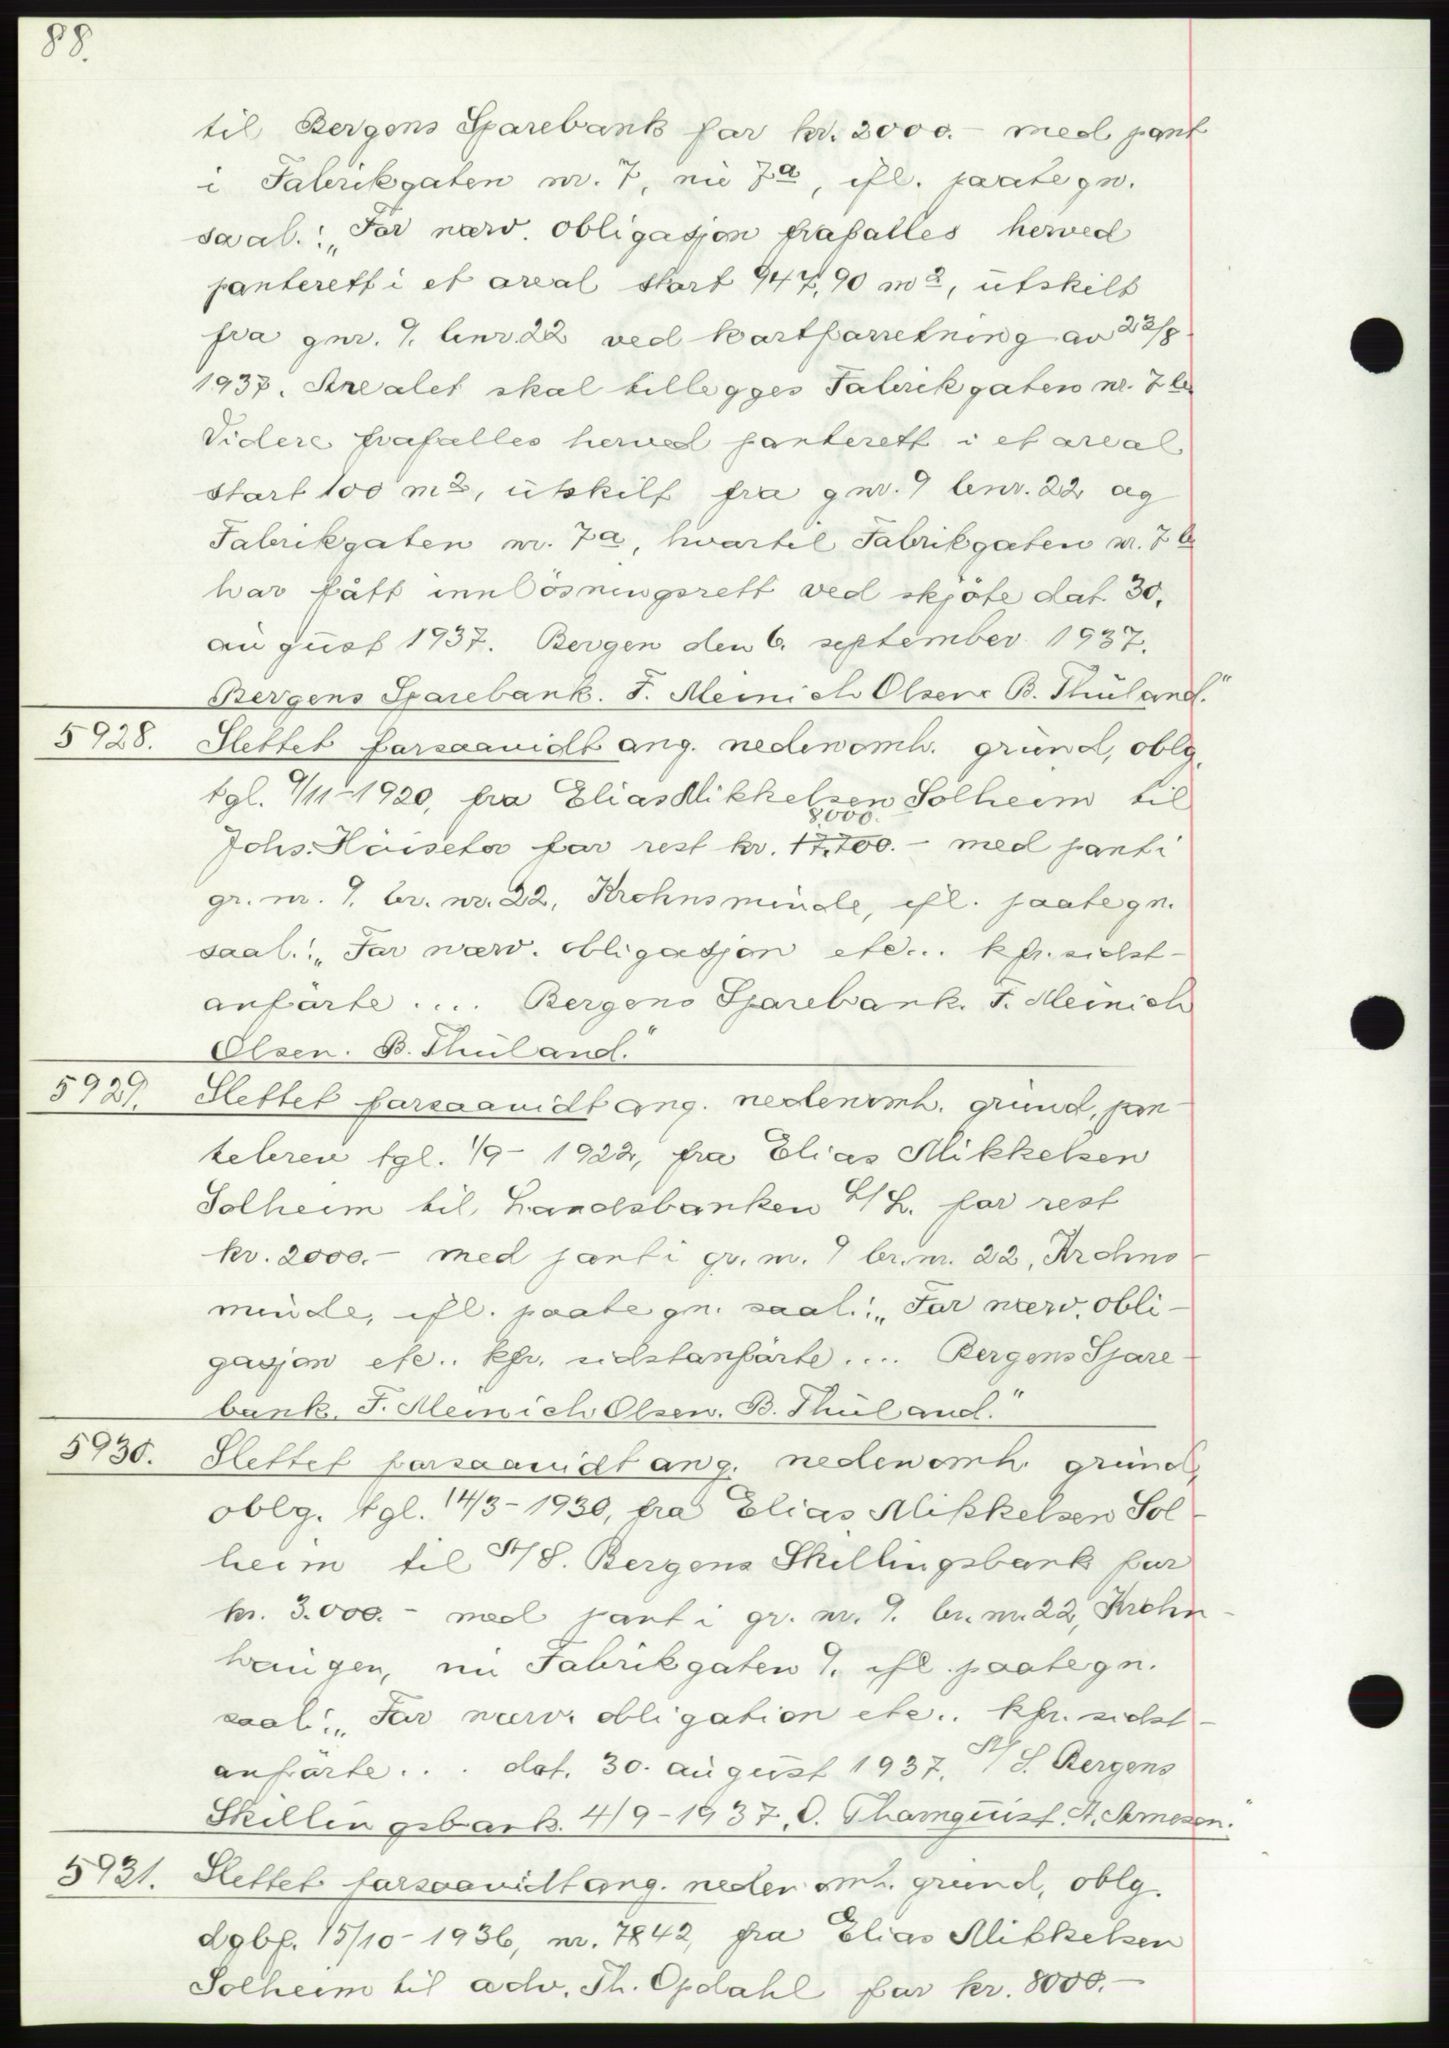 88.
til Bergens Sparebank for kr. 2000.- med pant
i Fabrikgaten nr. 7, nu 7a, ifl. paategn.
saal.: „For nærv. obligasjon frafalles herved
panterett i et areal stort 947,90 m2, utskilt
fra gnr. 9. bnr. 22 ved kartforretning av 23/8
1937. Arealet skal tillegges Fabrikgaten nr. 7b
Videre frafalles herved panterett i et areal
stort 100 m2, utskilt fra gnr. 9 bnr. 22 og
Fabrikgaten nr. 7a, hvortil Fabrikgaten nr. 7b
har fått innlösningsrett ved skjöte dat. 30.
august 1937. Bergen den 6. september 1937.
Bergens Sparebank. F. Meinich Olsen B. Thuland."
5928. Slettet forsaavidt ang. nedenomh. grund, oblg.
tgl. 9/11-1920, fra Elias Mikkelsen Solheim til
8.000.
Johs. Höiseter for rest kr. 17.700.- med pant i
gr. nr. 9. br. nr. 22, Krohnsminde, ifl. paategn.
saal.: „For nærv. obligasjon etc... kfr. sidst-
anförte .... Bergens Sparebank. F. Meinich
Olsen. B. Thuland."
5929. Slettet forsaavidt ang. nedenomh. grund, pan
tebrev tgl. 1/9- 1922, fra Elias Mikkelsen
Solheim til Landsbanken L/L. for rest
kr. 2000.- med pant i gr. nr. 9 br. nr. 22, Krohns-
minde, ifl. paategn. saal.: „For nærv. obli-
gasjon etc.. kfr. sidstanförte .... Bergens Spare-
bank. F. Meinich Olsen. B. Thuland."
5930. Slettet forsaavidt ang. nedenomh. grund,
oblg. tgl. 14/3-1930, fra Elias Mikkelsen Sol-
heim til A/S. Bergens Skillingsbank for
kr. 3.000.- med pant i gr. nr. 9. br. nr. 22, Krohn-
haugen, nu Fabrikgaten 9. ifl. paategn.
saal.: „For nærv. obligation etc.. kfr. sidst-
anförte... dat. 30. august 1937. A/S. Bergens
Skillingsbank. 4/9-1937. O. Thamquist. A. Arnesen."
5931. Slettet forsaavidt ang. nedenomh. grund, oblg.
dgbf. 15/10-1936, nr. 7842, fra Elias Mikkelsen
Solheim til adv. Th. Opdahl for kr. 8000.-